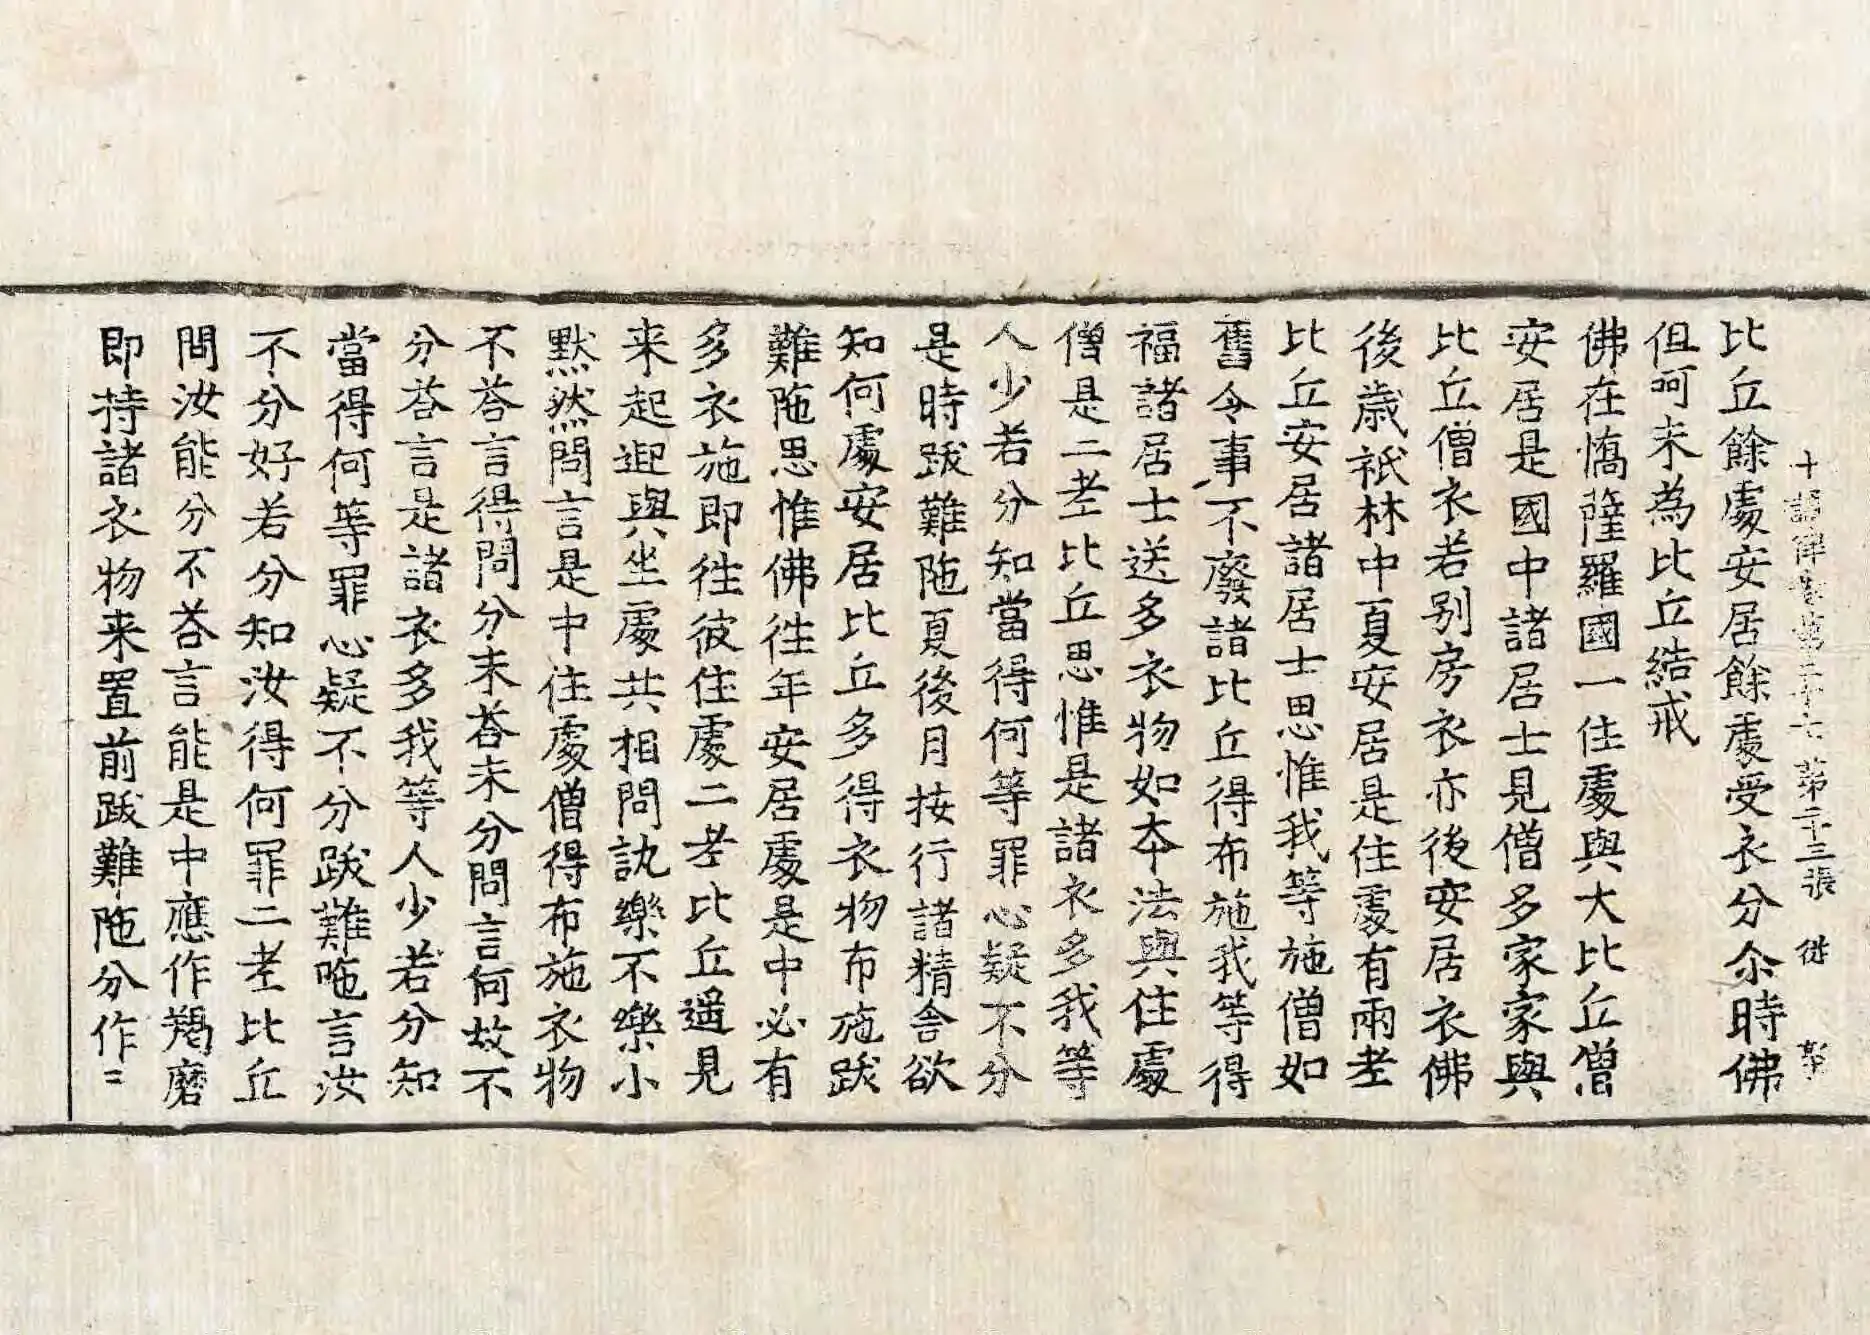 十誦律卷第二十七 第二十三張 徙
比丘餘處安居餘處受衣分尒時佛
但呵未為比丘結戒
佛在憍薩羅國一住處與大比丘僧
安居是國中諸居士見僧多家家與
比丘僧衣若別房衣亦後安居衣佛
後歲祇林中夏安居是住處有兩老
比丘安居諸居士思惟我等施僧如
舊令事不廢諸比丘得布施我等得
福諸居士送多衣物如夲法與住處
僧是二老比丘思惟是諸衣多我等
人少若分知當得何等罪心疑不分
是時跋難陁夏後月按行諸精舍欲
知何處安居比丘多得衣物布施跋
難陁思惟佛徃年安居處是中必有
多衣施即徃彼住處二老比丘遥見
来起迎與坐處共相問訊樂不樂小
默然問言是中住處僧得布施衣物
不荅言得問分未荅未分問言何故不
分荅言是諸衣多我等人少若分知
當得何等罪心疑不分跋難陁言汝
不分好若分知汝得何罪二老比丘
問汝能分不荅言能是中應作羯磨
即持諸衣物来置前跋難陁分作二